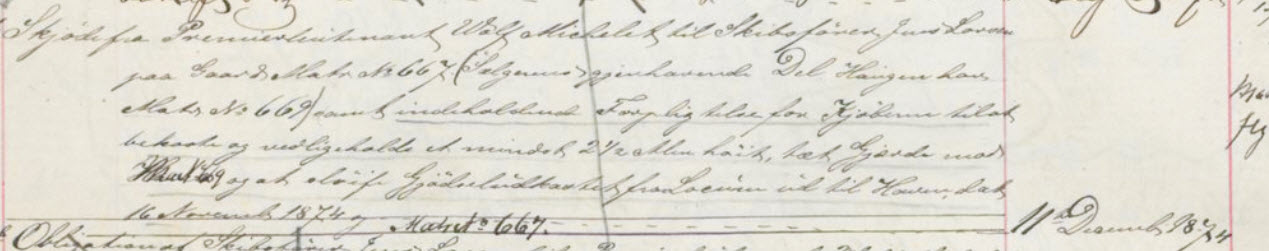 Skjøde fra Premierlieutenant Michelet til Skibsfører Jens
paa Gaard Matr No 667 (Sælgerens gjenhavende Del Haugen har
Matr. No 669) samt indeholdende Forpligtelse for Kjøberen til at
bekoste og vedligeholde et mindst 2 1/2 Alen høit, tæt Gjærde mod
og at sløife Gjødseludkastet fra Locum ud til Haven, dat
16 Novemb 1874 Matr No 667. 11 Decemb 1874
Obligation af Skibsfører